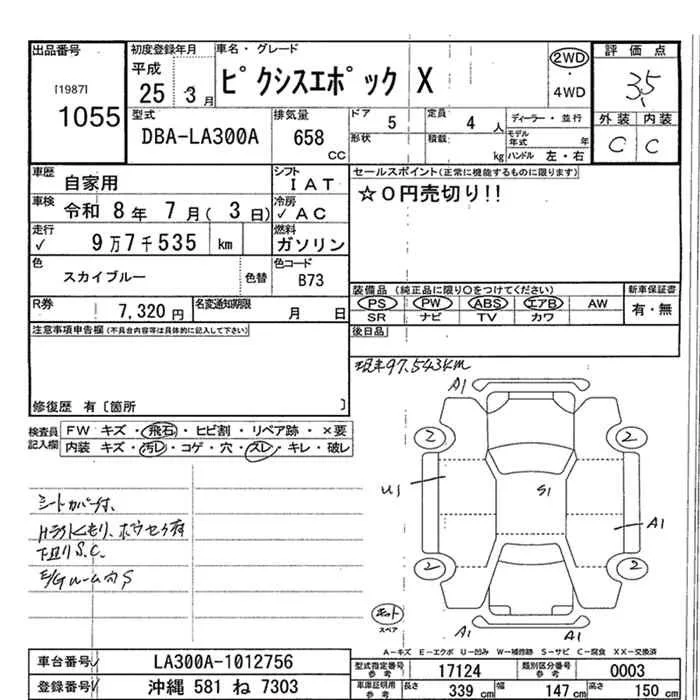 出品番号 初度登録年月 車名・グレード 評価点
[1987] 1055 平成 25 3月 ピクシスエポック X 2WD・4WD 3.5
型式 DBA-LA300A 排気量 658 CC ドア 5 定員 4人 ディーラー・並行 外装 内装
形状 積載 kg モデル年式 年 ハンドル 左・右 C C
車歴 自家用 シフト IAT セールスポイント(正常に機能するものに限ります)
車検 令和 8年 7月(3日) 冷房 ✓AC ☆0円売切り!!
走行 ✓ 9万7千535 km 燃料 ガソリン
色 スカイブルー 色替 色コード B73
装備品 (純正品に限り○をつけてください) 新車保証書
R券 7,320円 名変通知期限 月 日 PS PW ABS エアB AW 有・無
SR ナビ TV カワ
注意事項申告欄(不具合内容等は具体的に記入して下さい) 後日品
現車97,543km
修復歴 有〔箇所 〕
検査員記入欄 FW キズ・飛石・ヒビ割・リペア跡・×要
内装 キズ・汚レ・コゲ・穴・スレ・キレ・破レ
A1
2 2
U1 S1 A1
2 2
シートカバー付、
下廻りS.C.
スペア
A1 A1
A-キズ E-エクボ U-凹み W-補修跡 S-サビ C-腐食 XX-交換済
車台番号✓ LA300A-1012756 型式指定番号 参考 17124 類別区分番号 参考 0003
登録番号✓ 沖縄 581 ね 7303 車庫証明用 参考 長さ 339 cm 幅 147 cm 高さ 150 cm